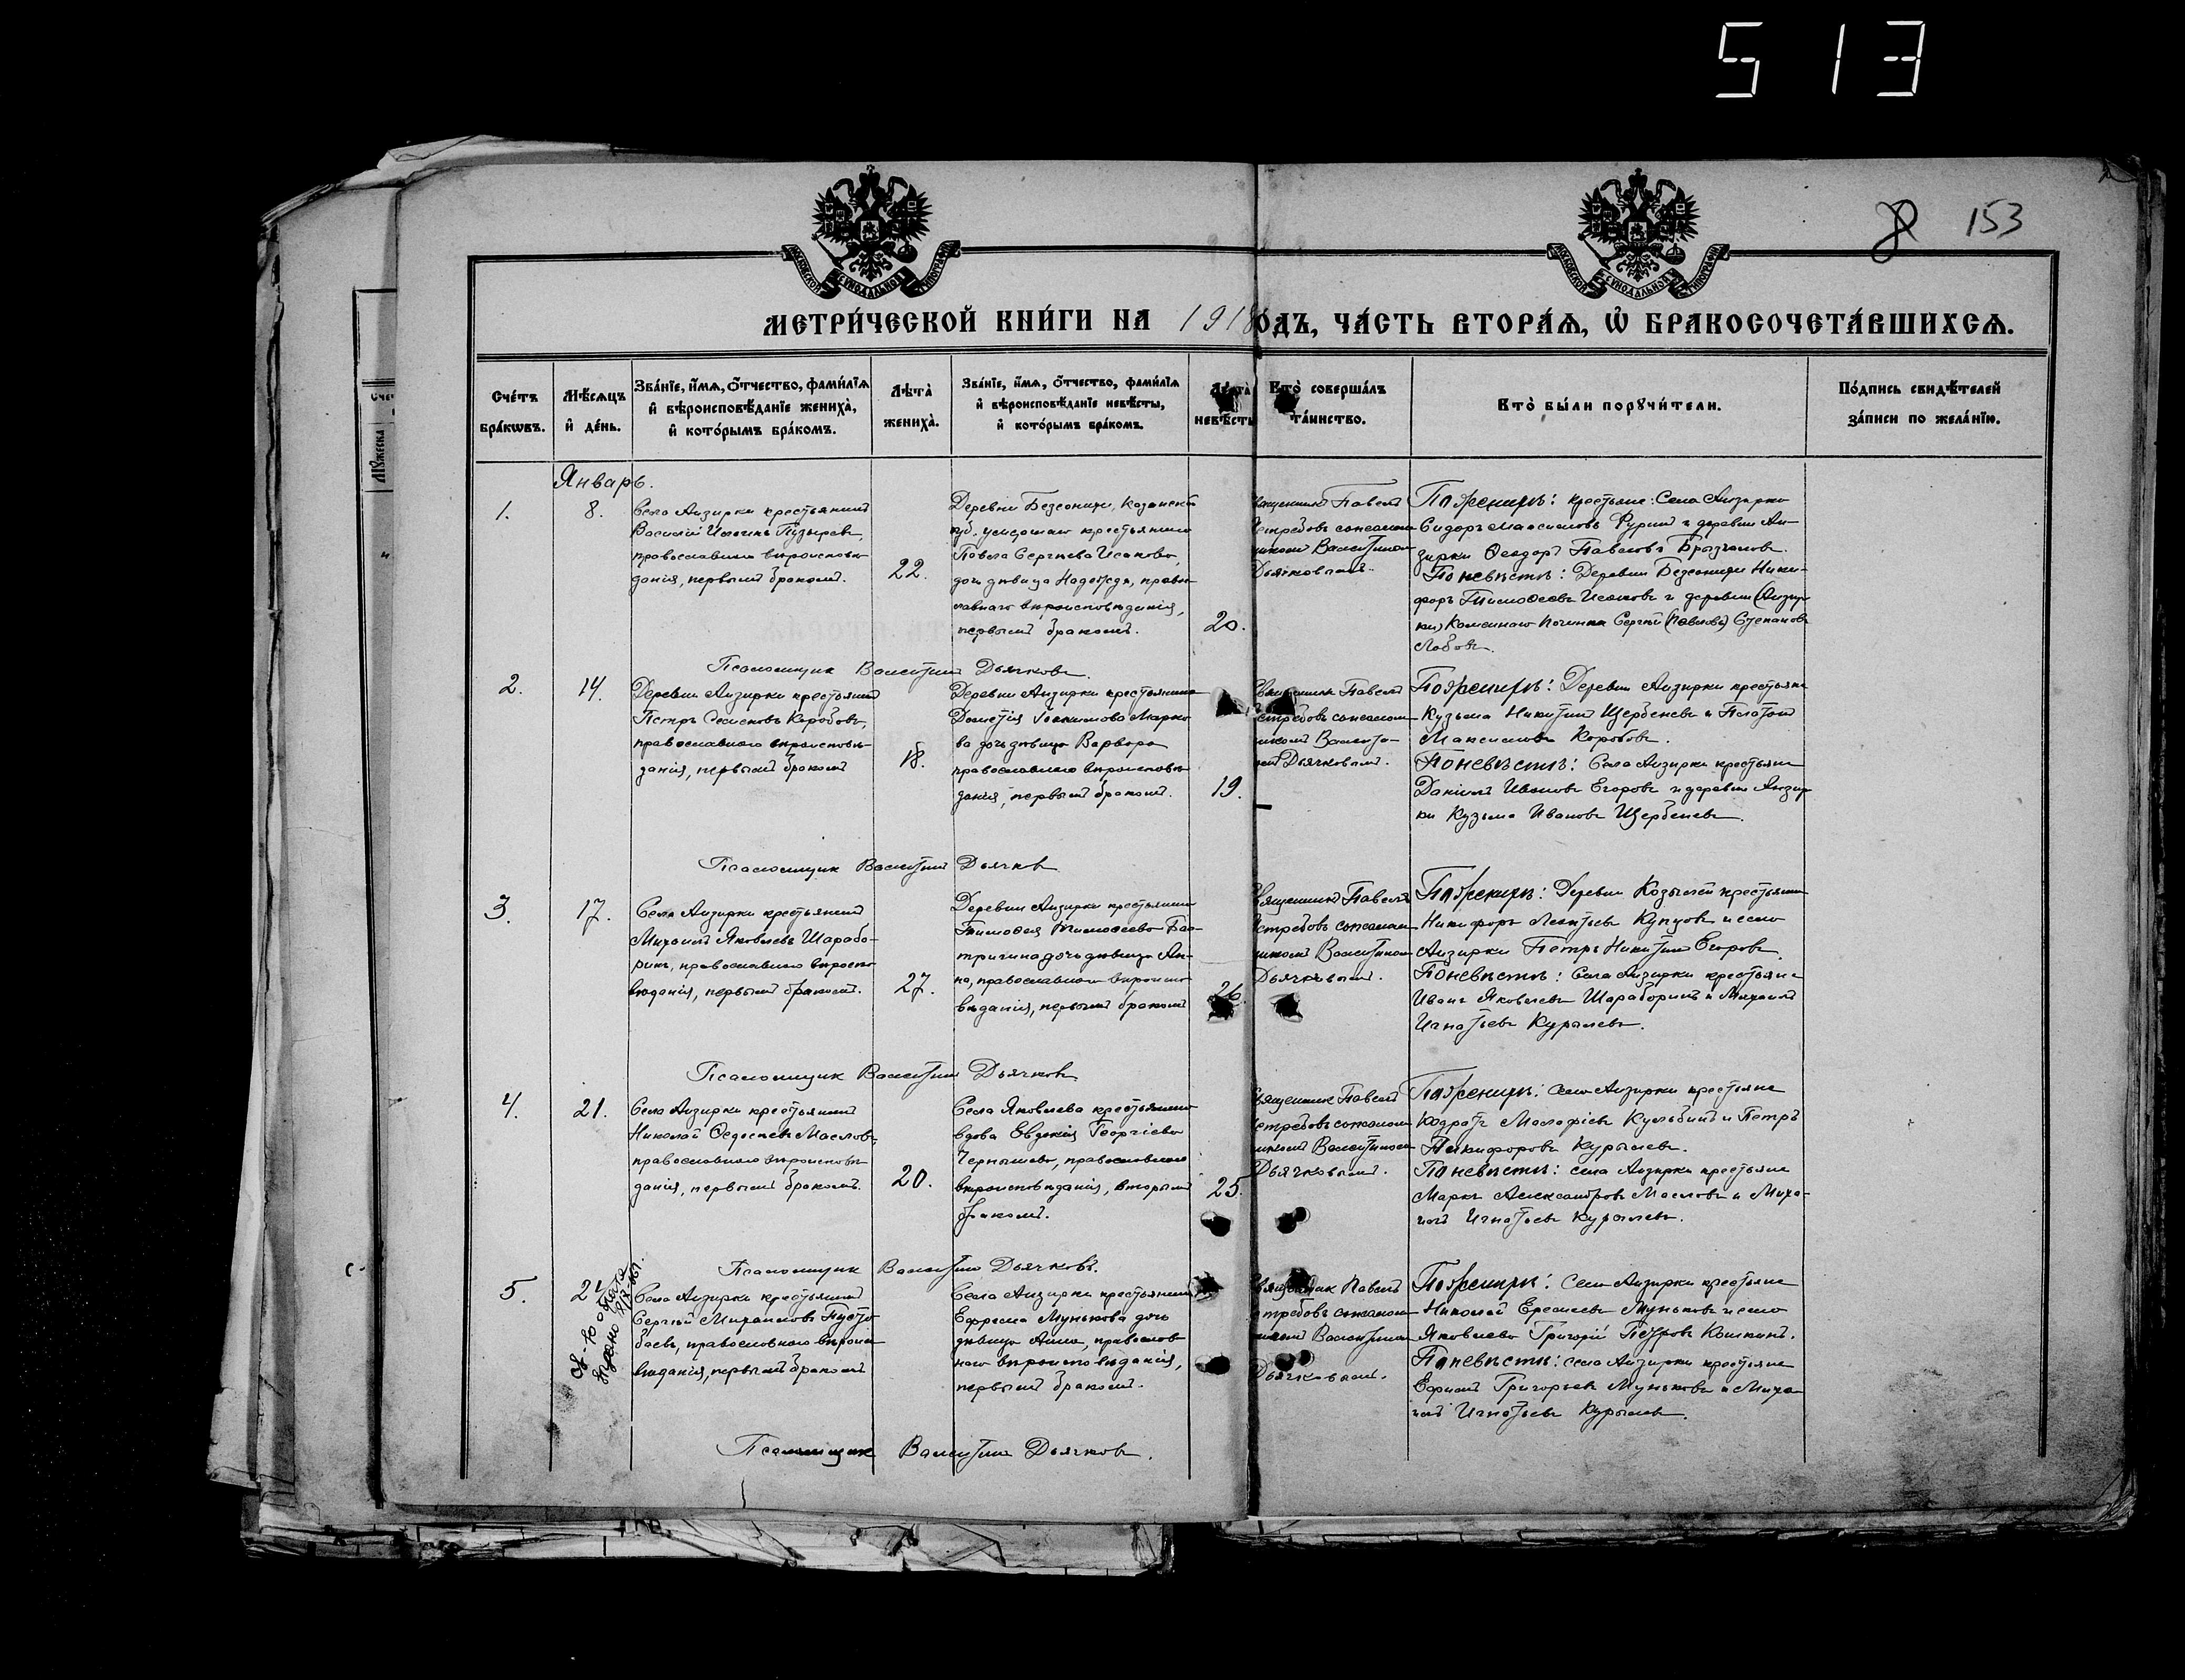 513
8 153
МОСКОВСКОЙ СУНОДАЛЬНОЙ ТИПОГРАФІИ
МОСКОВСКОЙ СУНОДАЛЬНОЙ ТИПОГРАФІИ
МЕТРИ́ЧЕСКОЙ КНИ́ГИ НА 1918 ОДЪ, ЧА́СТЬ ВТОРА́Ѧ, Ѡ БРАКОСОЧЕТА́ВШИХСѦ.
Сче́тъ бра́кѡвъ.
Мѣ́сѧцъ и де́нь.
Зва́нїе, и́мѧ, о́тчество, фами́лїѧ и вѣроисповѣ́данїе жениха̀, и кото́рымъ бра́комъ.
Лѣта̀ жениха̀.
Зва́нїе, и́мѧ, о́тчество, фами́лїѧ и вѣроисповѣ́данїе невѣ́сты, и кото́рымъ бра́комъ.
Лѣта̀ невѣ́сты
Кто̀ соверша́лъ та́инство.
Кто̀ бы́ли порꙋчи́тели.
По́дпись свидѣ́телей за́писи по жела́нїю.
Январь.
1.
8.
Села Анзирки крестьянинъ
Василій Ильинъ Пузыревъ,
православнаго вѣроисповѣ-
данія, первымъ бракомъ.
22.
Деревни Безсонихи, Казанской
губ. умершаго крестьянина
Павла Сергѣева Исакова,
дочь дѣвица Надежда, право-
славнаго вѣроисповѣданія,
первымъ бракомъ.
20.
священникъ Павелъ
Ястребовъ съ псалом-
щикомъ Валентиномъ
Дьячковымъ.
По женихѣ: крестьяне: Села Анзирки
Сидоръ Максимовъ Фуринъ и деревни Ан-
зирки Ѳеодоръ Павловъ Брызгаловъ.
По невѣстѣ: Деревни Безсонихи Ники-
форъ Тимоѳеевъ Исаковъ и деревни (Анзир
ки) Каменнаго Починка Сергѣй (Павловъ) Степановъ
Лобовъ.
Псаломщик Валентин Дьячковъ.
2.
14.
Деревни Анзирки крестьянинъ
Петръ Семеновъ Коробовъ,
православнаго вѣроисповѣ-
данія, первымъ бракомъ
18.
Деревни Анзирки крестьянина
Дометія Іоакимова Марко
ва дочь дѣвица Варвара
православнаго вѣроисповѣ
данія, первымъ бракомъ.
19.
Священникъ Павелъ
Ястребовъ съ псалом-
щикомъ Валенти-
номъ Дьячковымъ.
По женихѣ: Деревни Анзирки крестьяне
Кузьма Никитинъ Щербеневъ и Платонъ
Максимовъ Коробовъ.
По невѣстѣ: Села Анзирки крестьяне
Даніилъ Ивановъ Егоровъ и деревни Анзир
ки Кузьма Ивановъ Щербеневъ.
Псаломщик Валентин Дьячков
3.
17.
Села Анзирки крестьянинъ
Михаилъ Яковлевъ Шарабо-
ринъ, православнаго вѣроиспо
вѣданія, первымъ бракомъ.
27.
Деревни Анзирки крестьянина
Тимоѳея Тимоѳеева Ба
тригина дочь дѣвица Ан-
на, православнаго вѣроиспо
вѣданія, первымъ бракомъ
26.
Священникъ Павелъ
Ястребовъ съ псалом
щикомъ Валентиномъ
Дьячковымъ.
По женихѣ: Деревни Козылей крестьянинъ
Никифоръ Леонтьевъ Купцовъ и село
Анзирки Петръ Никитинъ Егоровъ.
По невѣстѣ: Села Анзирки крестьяне
Иванъ Яковлевъ Шараборинъ и Михаилъ
Игнатьевъ Курылевъ.
Псаломщик Валентин Дьячковъ
4.
21.
Села Анзирки крестьянинъ
Николай Ѳедосѣевъ Масловъ,
православнаго вѣроисповѣ
данія, первымъ бракомъ.
20.
Села Яковлева крестьянина
вдова Евдокія Георгіева
Чернышева, православнаго
вѣроисповѣданія, вторымъ
бракомъ.
25.
Священник Павелъ
Ястребовъ съ псалом
щикомъ Валентиномъ
Дьячковымъ.
По женихѣ: село Анзирки крестьяне
Кодратъ Малафіевъ Кульбинъ и Петръ
Никифоровъ Курылевъ.
По невѣстѣ: села Анзирки крестьяне
Маркъ Александровъ Масловъ и Миха-
илъ Игнатьевъ Курылевъ.
Псаломщик Валентин Дьячковъ.
5.
21
Села Анзирки крестьянинъ
Сергѣй Михаиловъ Пусто
баевъ, православнаго вѣроиспо
вѣданія, первымъ бракомъ
Села Анзирки крестьянина
Ефрема Мунькова дочь
дѣвица Анна, православ
наго вѣроисповѣданія,
первымъ бракомъ.
Священник Павелъ
Ястребовъ съ псалом
щикомъ Валентиномъ
Дьячковымъ.
По женихѣ: Села Анзирки крестьяне
Николай Еремеевъ Муньковъ и село
Яковлево Григорій Петровъ Кошкинъ.
По невѣстѣ: села Анзирки крестьяне
Ефимъ Григорьевъ Муньковъ и Миха
илъ Игнатьевъ Курылевъ.
Псаломщик Валентин Дьячковъ.